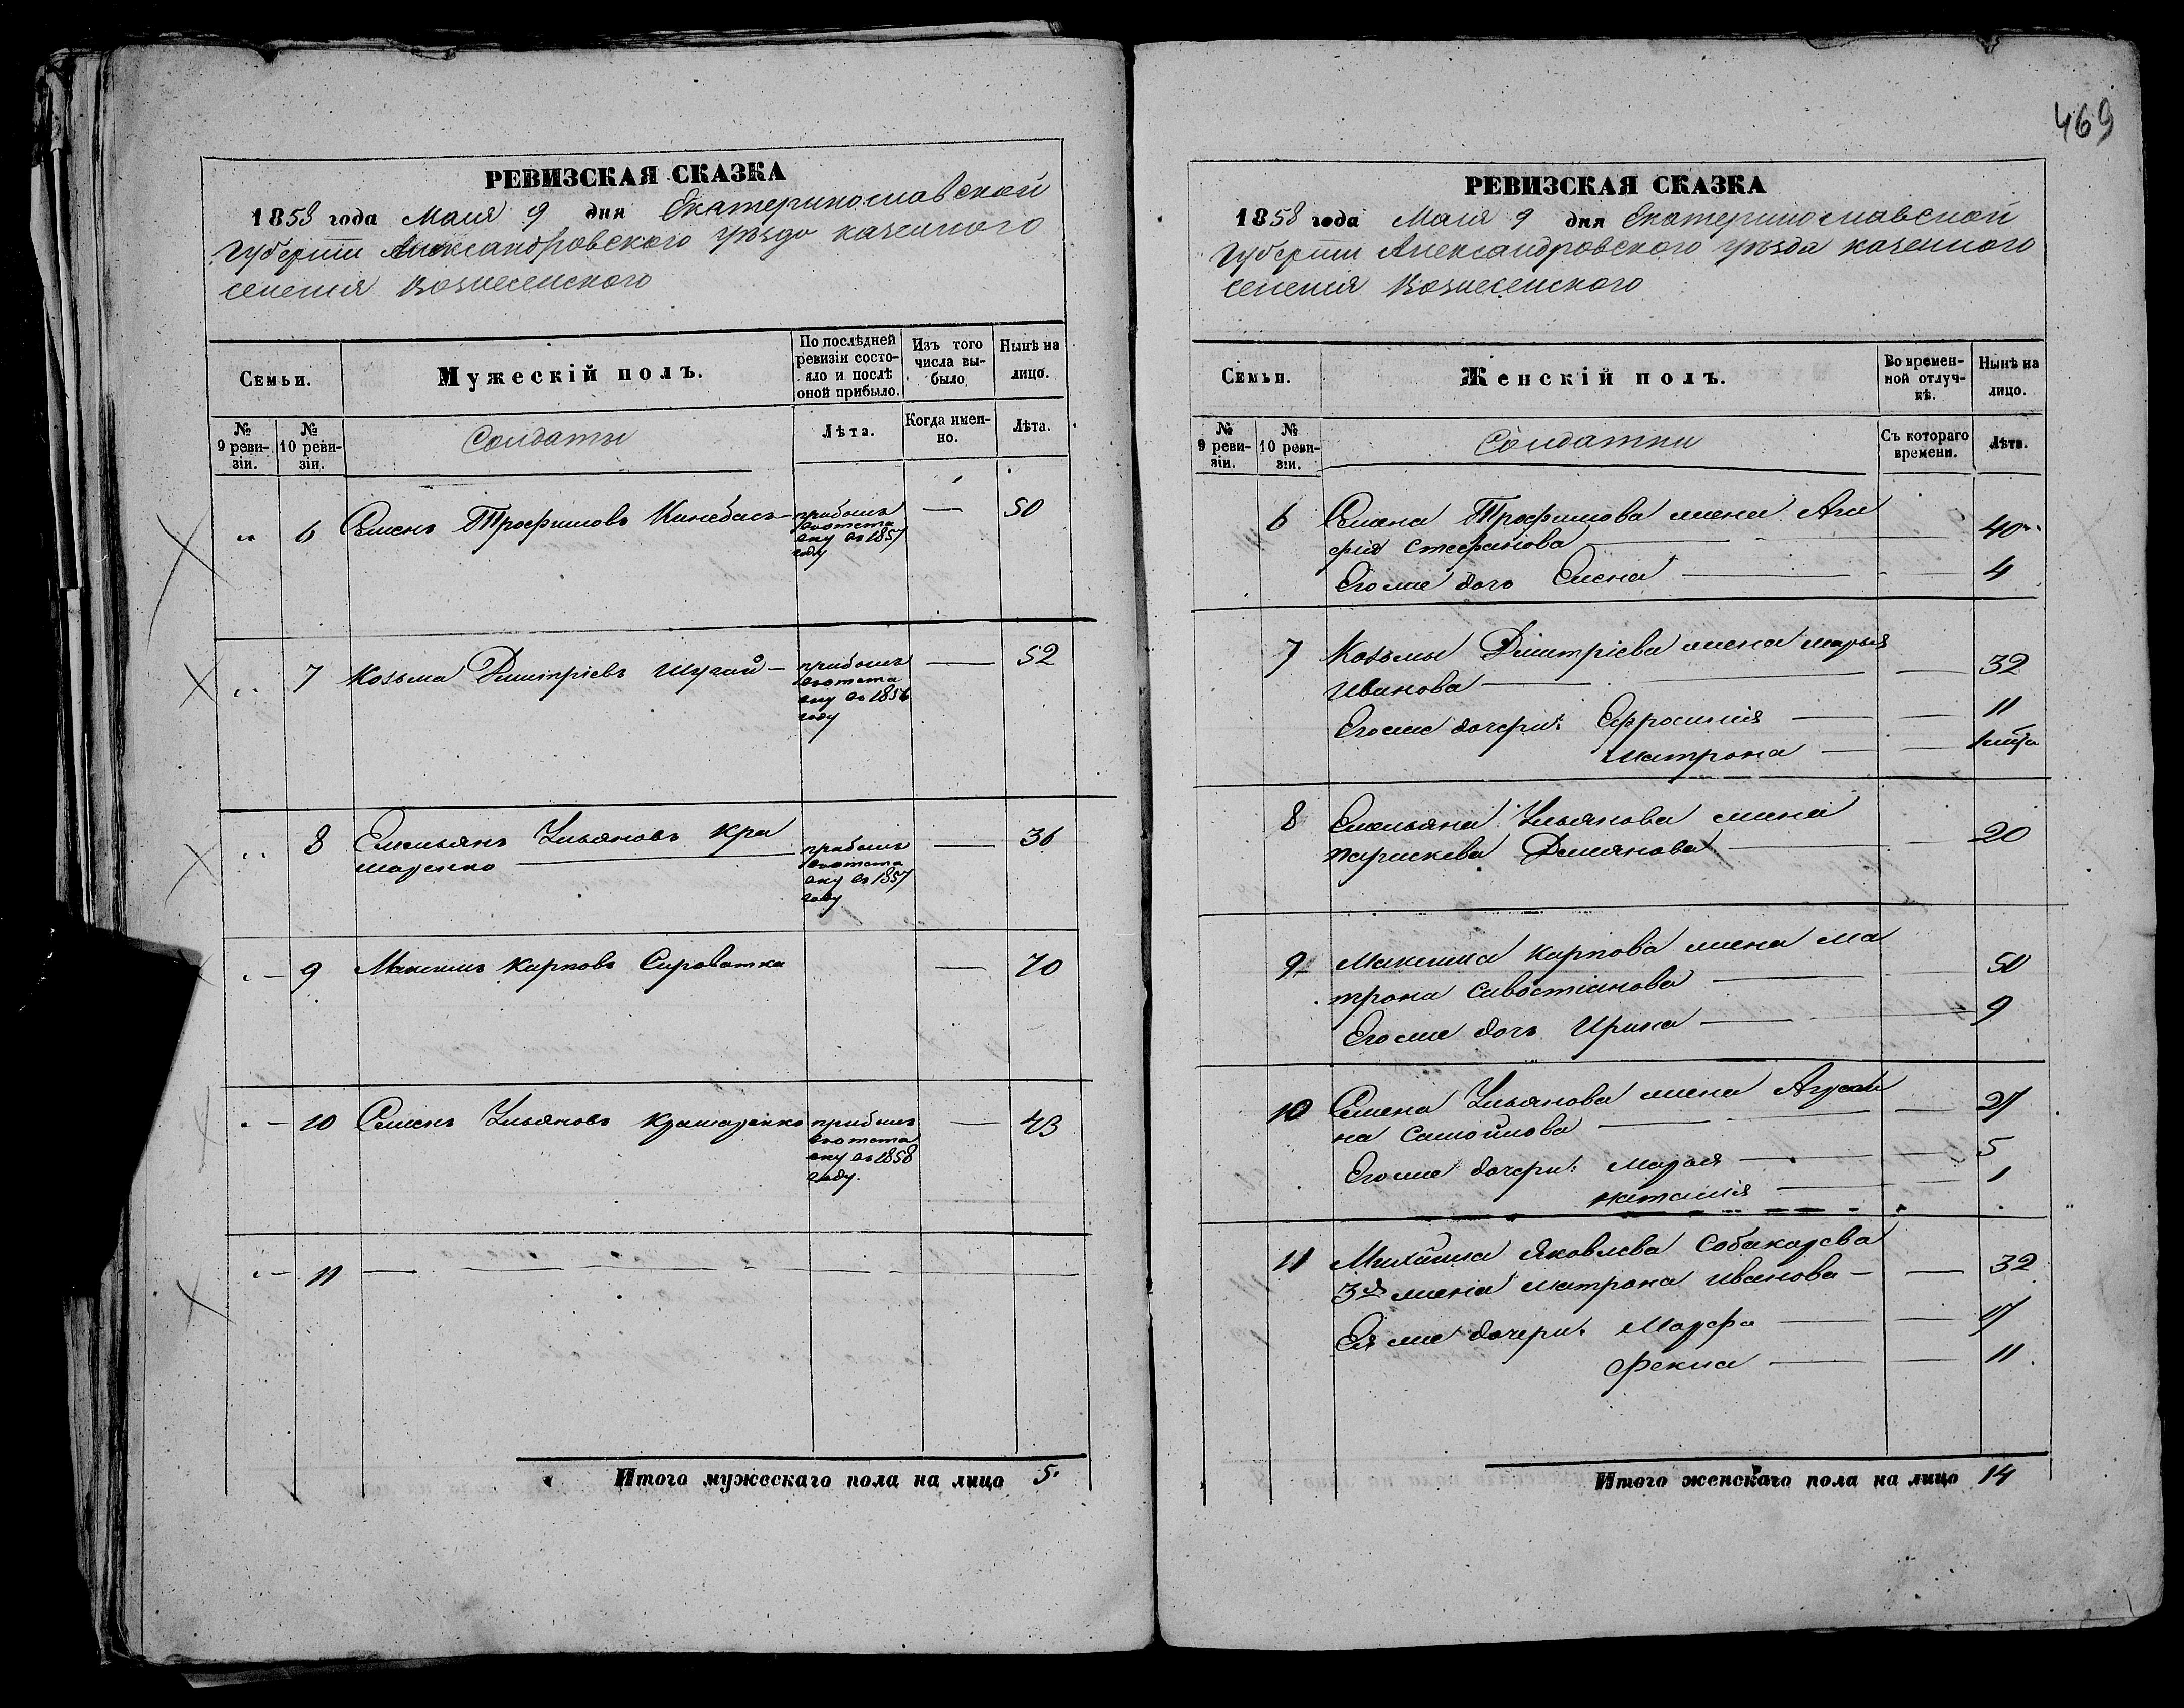 469
РЕВИЗСКАЯ СКАЗКА
1858 года Маия 9 дня Екатеринославской
Губернии Александровского уѣзда казенного
селения Вознесенского
Семьи.
Мужескій полъ.
По послѣдней ревизіи состояло и послѣ оной прибыло.
Изъ того числа выбыло
Ныне на лицо.
№ 9 ревизіи.
№ 10 ревизіи.
Солдаты
Лѣта.
Когда именно.
Лѣта.
6 Семенъ Трофимовъ — 50
прибылъ
в 1857
году
7 Козьма Димитріевъ Шугай — 52
прибылъ
в 1856
году
8 Емельянъ Ульяновъ Кра — 36
маренко
прибылъ
в 1857
году
9 Максимъ Карповъ Сироватка — 70
10 Семенъ Ульяновъ Крамаренко — 43
прибылъ
в 1858
году.
11
Итого мужескаго пола на лицо 5.
РЕВИЗСКАЯ СКАЗКА
1858 года Маия 9 дня Екатеринославской
Губернии Александровского уѣзда казенного
селения Вознесенского
Семьи.
Женскій полъ.
Во временной отлучкѣ.
Нынѣ на лицо.
№ 9 ревизіи.
№ 10 ревизіи.
Солдатки
Съ котораго времени.
Лѣта.
6 Семена Трофимова жена Ага
фія Стефанова — 40
Его же дочь Елена — 4
7 Козьмы Димитріева жена Марья
Иванова — 32
Его же дочери: Ефросинія — 11
Матрона —
8 Емельяна Ульянова жена
Парискева Демянова — 20
9 Максима Карпова жена Ма
трона Савостіанова — 50
Его же дочь Ирина — 9
10 Семена Ульянова жена
на Самойлова — 27
Его же дочери: Марья — 5
Наталія — 1
11 Михайла Яковлева Собакарева
3я жена Матрона Иванова — 32
Ея же дочери: Марфа — 17
Фекла — 11.
Итого женскаго пола на лицо 14